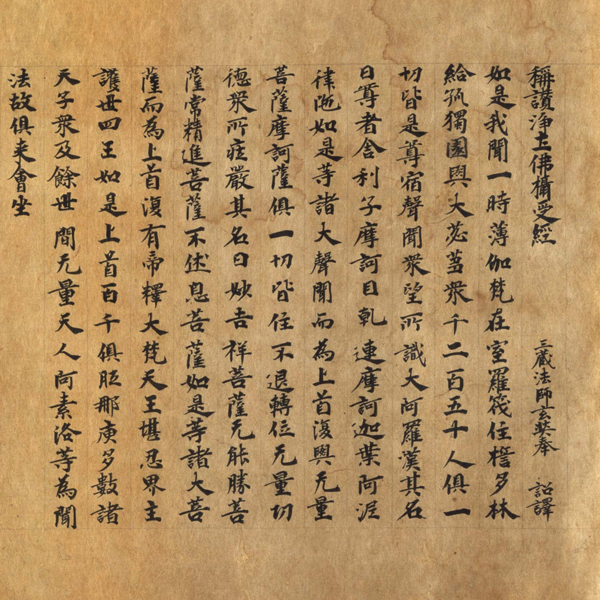 稱讚淨土佛攝受經 三藏法師玄奘奉 詔譯
如是我聞一時薄伽梵在室羅筏住誓多林
給孤獨園與大苾芻衆千二百五十人俱一
切皆是尊宿聲聞衆望所識大阿羅漢其名
曰尊者舍利子摩訶目乹連摩訶迦葉阿泥
律陁如是等諸大聲聞而為上首復與无量
菩薩摩訶薩俱一切皆住不退轉位无量切
德衆所疰嚴其名曰妙吉祥菩薩无能勝菩
薩常精進菩薩不休息菩薩如是等諸大菩
薩而為上首復有帝釋大梵天王堪忍界主
護世四王如是上首百千俱胝那庾多數諸
天子衆及餘世間无量天人阿素洛等為聞
法故俱来會坐